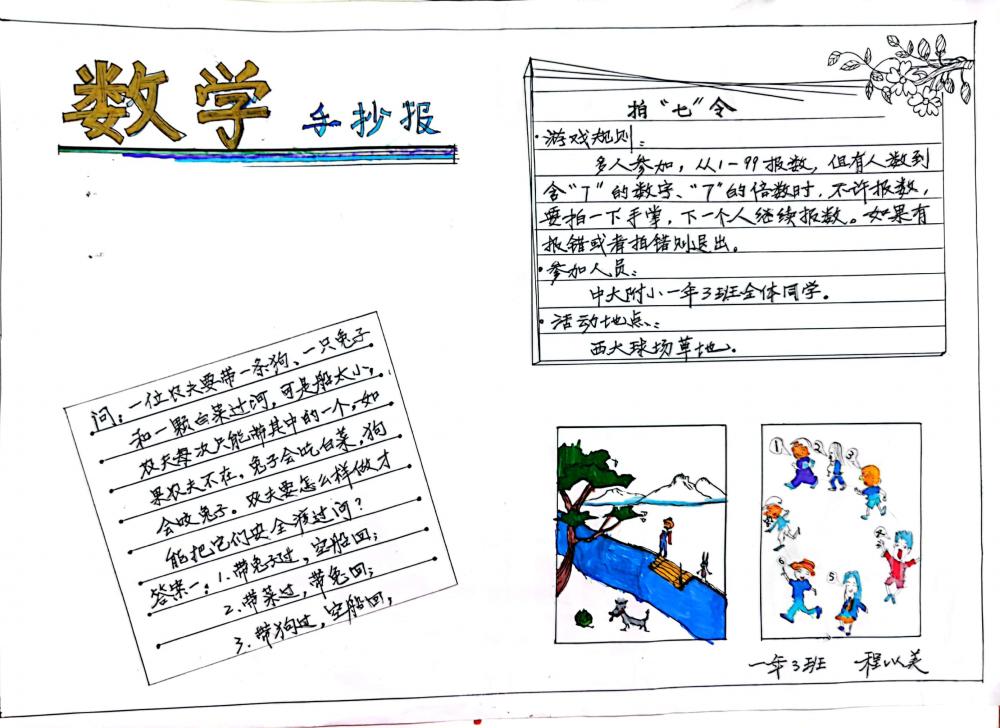 数学
手抄报
拍“七”令
·游戏规则:
多人参加，从1-99报数，但有人数到
含“7”的数字、“7”的倍数时，不许报数，
要拍一下手掌，下一个人继续报数。如果有
报错或者拍错则退出。
·参加人员:
中大附小一年3班全体同学。
·活动地点:
西大球场草地。
问:一位农夫要带一条狗、一只兔子
和一颗白菜过河，可是船太小，
农夫每次只能带其中的一个，如
果农夫不在，兔子会吃白菜，狗
会咬兔子。农夫要怎么样做才
能把它们安全渡过河?
答案一:1.带兔子过，空船回;
2.带菜过，带兔回;
3.带狗过，空船回，
1
2
3
5
6
一年3班 程以美